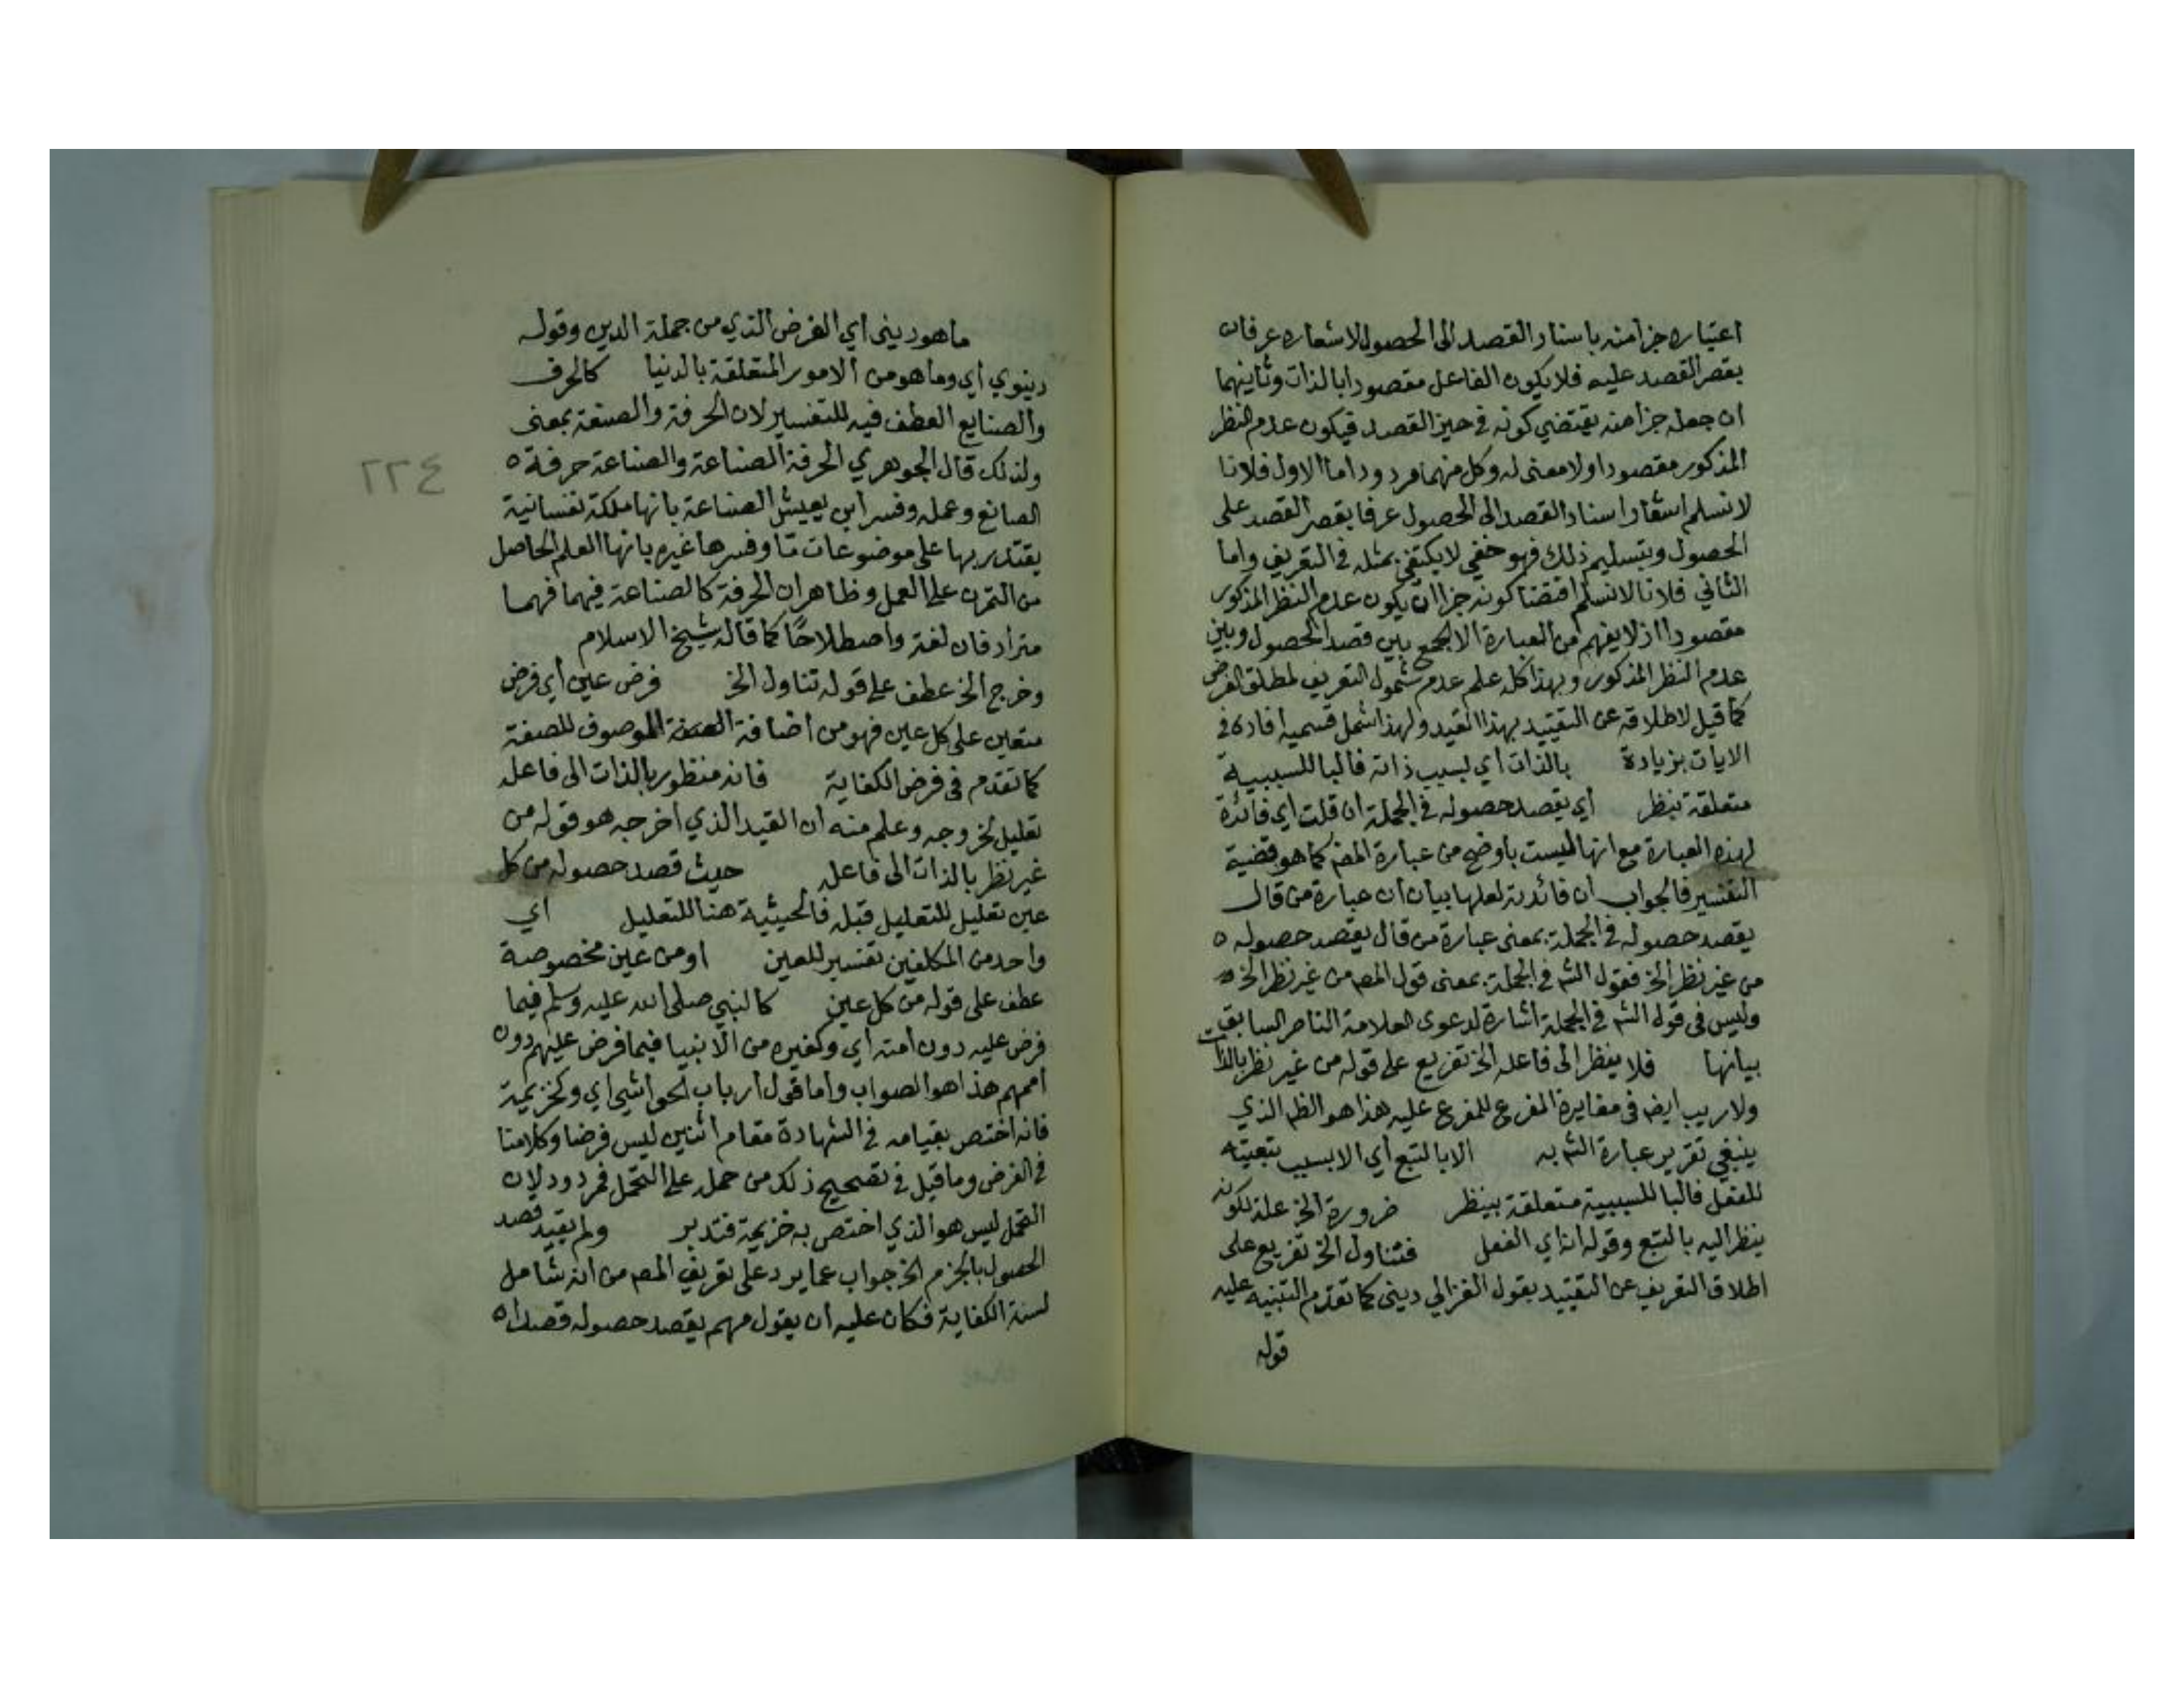 اعتباره جزأ منه باسناد القصد الى الحصول لاشعاره عرفا ن
بقصر القصد عليه فلا يكون الفاعل مقصودا بالذات وثانيهما
ان جعله جزأ منه يقتضي كونه في حيز القصد فيكون عدم النظر
المذكور مقصودا ولا معنى له وكل منهما مردود اما الاول فلانا
لا نسلم اشعار اسناد القصد الى الحصول عرفا بقصر القصد على
الحصول وبتسليم ذلك فهو خفي لا يكتفى بمثله في التعريف واما
الثاني فلانا لا نسلم اقتضا كونه جزا ان يكون عدم النظر المذكور
مقصودا اذ لا يفهم من العبارة الا الجمع بين قصد الحصول وبين
عدم النظر المذكور وبهذا كله علم عدم شمول التعريف لمطلق الفرض
كما قيل لاطلاقه عن التقييد بهذا القيد ولهذا شمل قسميه افاده في
الايات بزيادة بالذات اي بسبب ذاته فالبا للسببية
متعلقة بنظر اي يقصد حصوله في الجملة ان قلت اي فائدة
لهذه العبارة مع انها ليست باوضح من عبارة المص كما هو قضية
التفسير فالجواب ان فائدته لعلها بيان ان عبارة من قال
يقصد حصوله في الجملة بمعنى عبارة من قال يقصد حصوله ٥
من غير نظر الخ فقول الش في الجملة بمعنى قول المص من غير نظر الخ ٥
وليس في قول الش في الجملة اشارة لدعوى العلامة الناصر السابق
بيانها فلا ينظر الى فاعله الخ تفريع على قوله من غير نظر بالذات
ولا ريب ايض في مغايرة المفرع للمفرع عليه هذا هو الظ الذي
ينبغي تقرير عبارة الش به الا بالتبع اي الا بسبب تبعيته
للفعل فالبا للسببية متعلقة بينظر ضرورة الخ علة لكونه
ينظر اليه بالتبع وقوله انه اي الفعل فتناول الخ تفريع على
اطلاق التعريف عن التقييد بقول الغزالي ديني كما تقدم التنبيه عليه
قوله
ما هو ديني اي الفرض الذي من جملة الدين وقوله
دينوي اي وما هو من الامور المتعلقة بالدنيا كالحرف
والصنايع العطف فيه للتفسير لان الحرفة والصنعة بمعنى
ولذلك قال الجوهري الحرفة الصناعة والصناعة حرفة ٥
الصانع وعمله وفسر ابن يعيش الصناعة بانها ملكة نفسانية
يقتدر بها على موضوعات ما وفسرها غيره بانها العلم الحاصل
من التمرن على العمل وظاهر ان الحرفة كالصناعة فيهما فهما
مترادفان لغة واصطلاحًا كما قاله شيخ الاسلام
وخرج الخ عطف على قوله تناول الخ فرض عين اي فرض
متعين على كل عين فهو من اضافة الموصوف للصفة
كما تقدم في فرض الكفاية فانه منظور بالذات الى فاعله
تعليل لخروجه وعلم منه ان القيد الذي اخرجه هو قوله من
غير نظر بالذات الى فاعله حيث قصد حصوله من كل
عين تعليل للتعليل قبله فالحيثية هنا للتعليل اي
واحد من المكلفين تفسير للعين او من عين مخصوصة
عطف على قوله من كل عين كالنبي صلى الله عليه وسلم فيما
فرض عليه دون امته اي وكغيره من الانبيا فيما فرض عليهم دون
اممهم هذا هو الصواب واما قول ارباب الحواشي اي وكخزيمة
فانه اختص بقيامه في الشهادة مقام اثنين ليس فرضا وكلامنا
في الفرض وما قيل في تصحيح ذلك من حمله على التحمل فمردود لان
التحمل ليس هو الذي اختص به خزيمة فتدبر ولم يقيد قصد
الحصول بالجزم الخ جواب عما يرد على تعريف المص من انه شامل
لسنة الكفاية فكان عليه ان يقول مهم يقصد حصوله قصدا ٥
٢٢٤